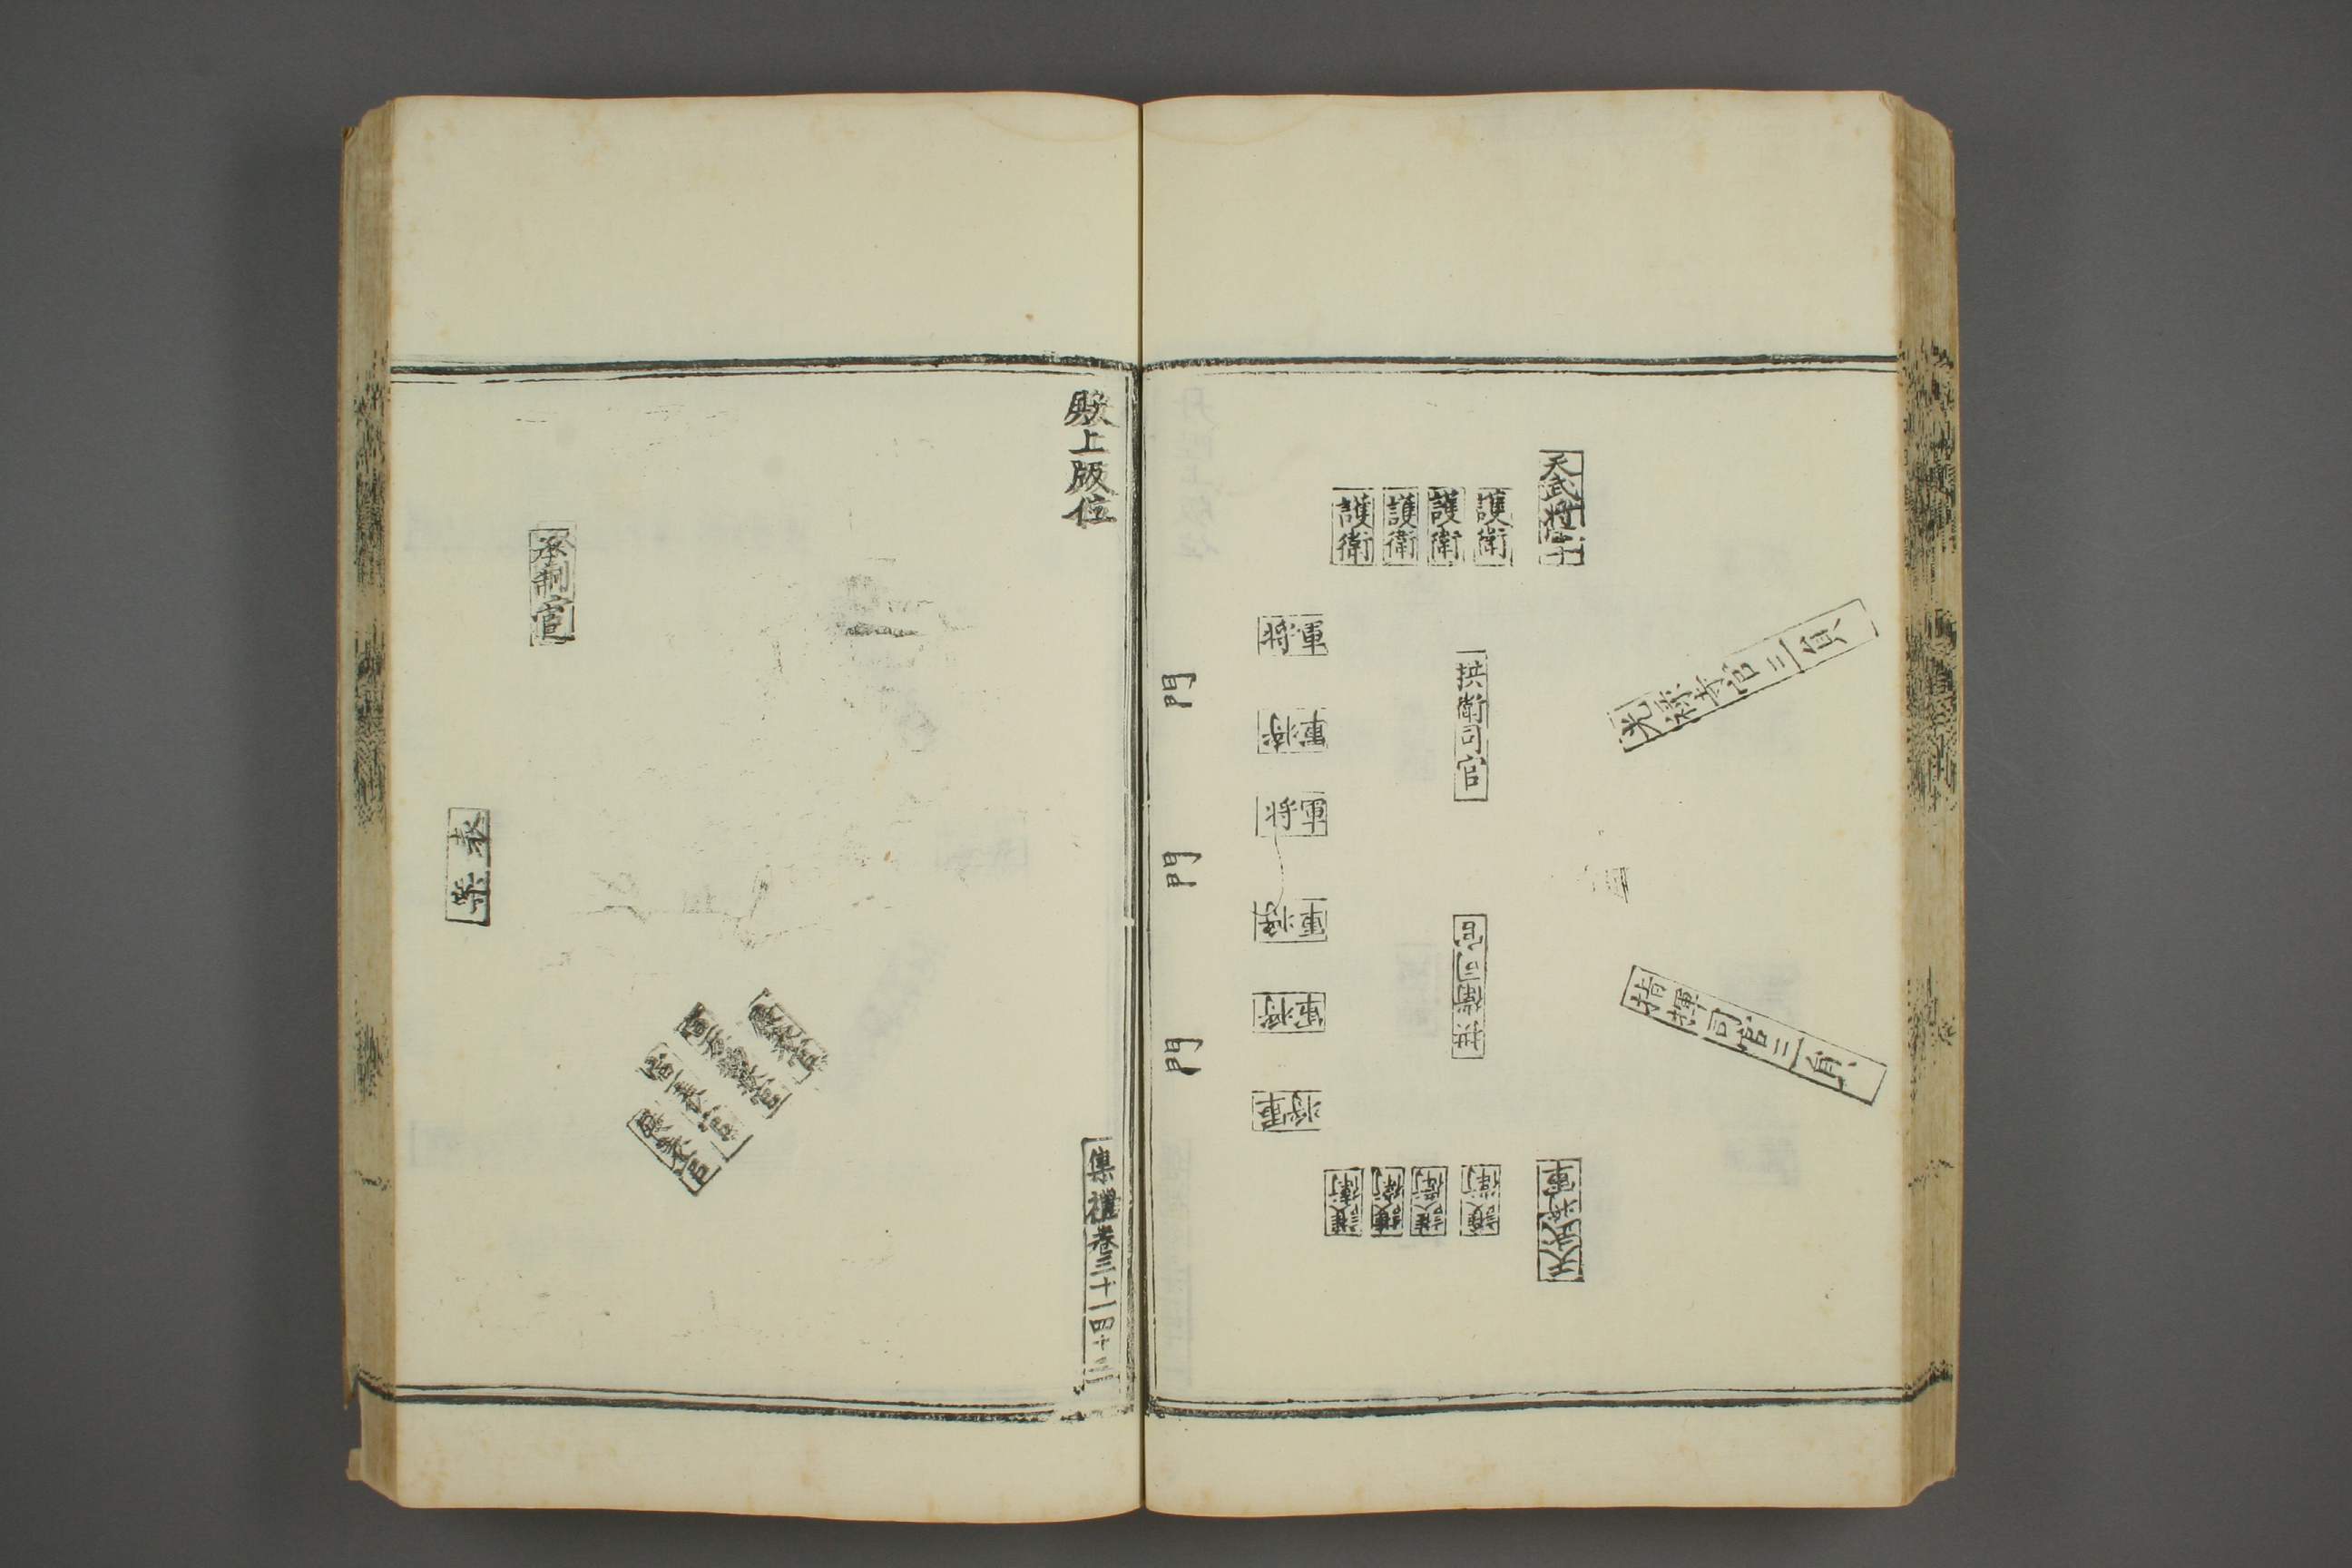 天武將軍
護衛
護衛
護衛
護衛
光祿寺官三員
拱衛司官
將軍
將軍
將軍
將軍
將軍
將軍
門
門
門
拱衛司官
指揮司官三員
天武將軍
護衛
護衛
護衛
護衛
殿上版位
承制官
表案
宣表官
展表官
集禮卷三十一 四十三